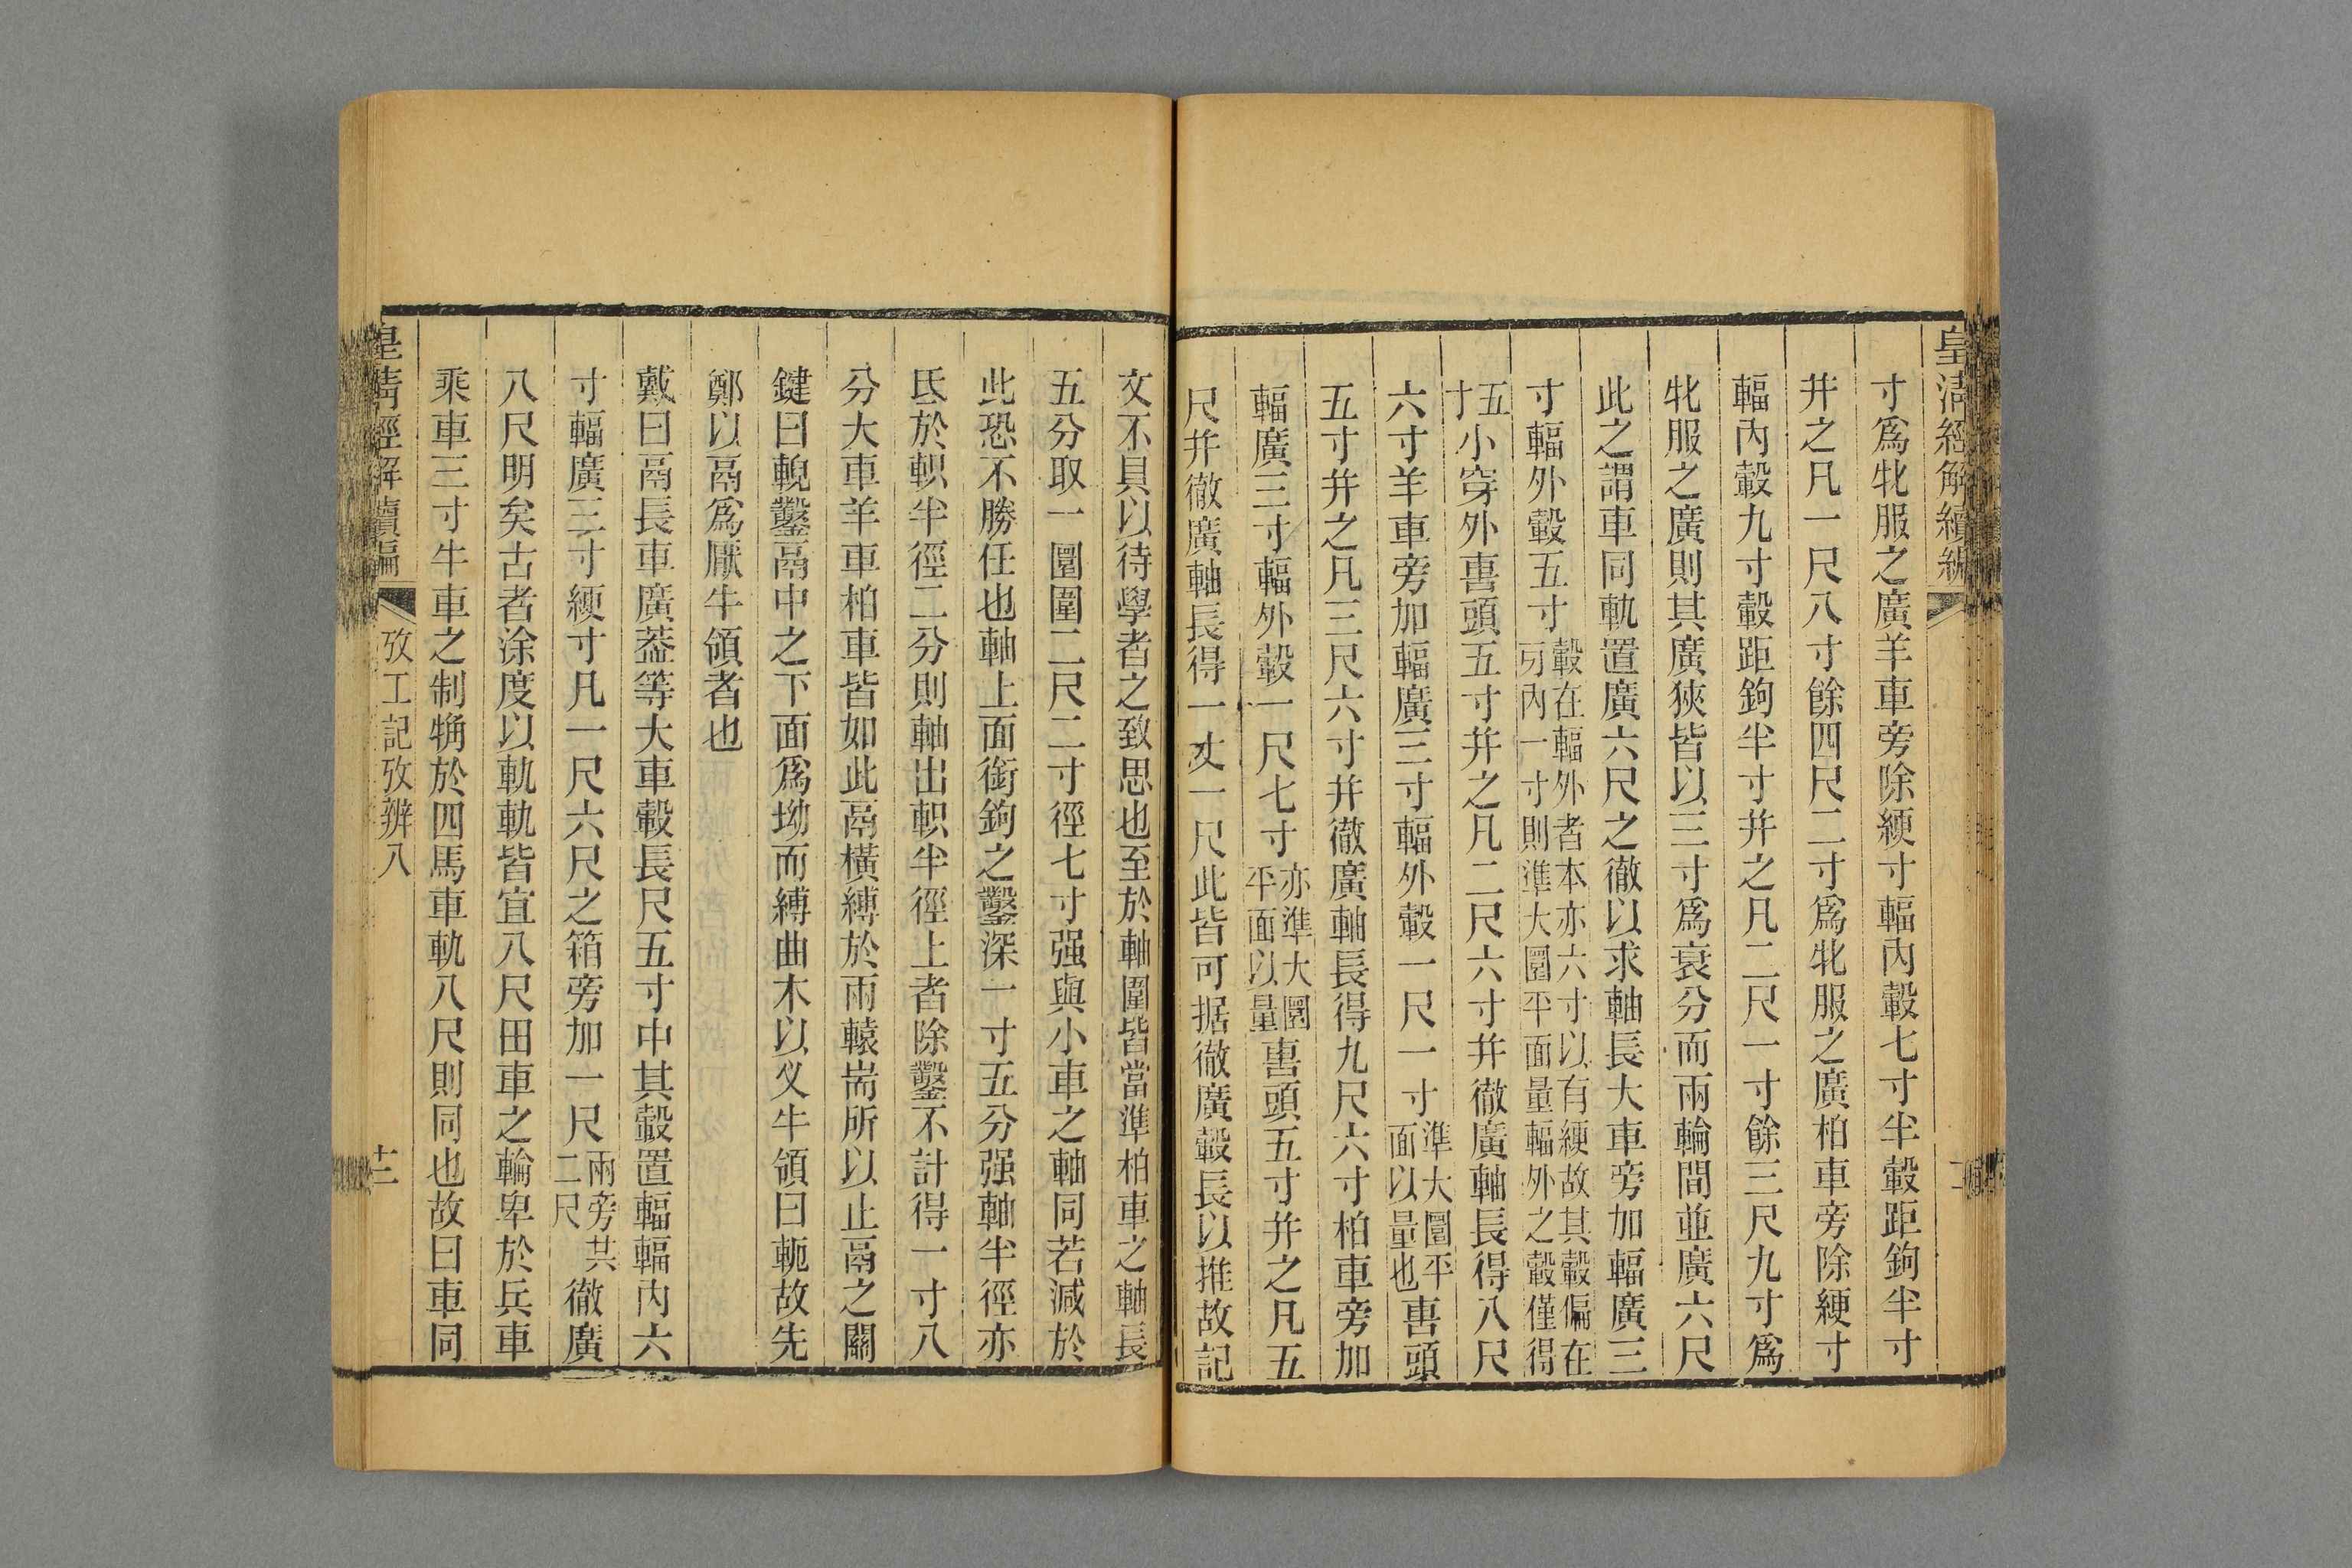 皇清經解續編
寸爲牝服之廣羊車旁除綆寸輻內轂七寸半轂距鉤半寸
幷之凡一尺八寸餘四尺二寸爲牝服之廣柏車旁除綆寸
輻內轂九寸轂距鉤半寸幷之凡二尺一寸餘三尺九寸爲
牝服之廣則其廣狹皆以三寸爲衰分而兩輪間並廣六尺
此之謂車同軌置廣六尺之徹以求軸長大車旁加輻廣三
寸輻外轂五寸轂在輻外者本亦六寸以有綆故其轂偏在
內一寸則準大圜平面量輻外之轂僅得
五寸小穿外軎頭五寸幷之凡二尺六寸幷徹廣軸長得八尺
六寸羊車旁加輻廣三寸輻外轂一尺一寸準大圜平
面以量也軎頭
五寸幷之凡三尺六寸幷徹廣軸長得九尺六寸柏車旁加
輻廣三寸輻外轂一尺七寸亦準大圜
平面以量軎頭五寸幷之凡五
尺幷徹廣軸長得一丈一尺此皆可据徹廣轂長以推故記
文不具以待學者之致思也至於軸圍皆當準柏車之軸長
五分取一圍圍二尺二寸徑七寸强與小車之軸同若減於
此恐不勝任也軸上面銜鉤之鑿深一寸五分强軸半徑亦
氐於軹半徑二分則軸出軹半徑上者除鑿不計得一寸八
分大車羊車柏車皆如此鬲橫縛於兩轅耑所以止鬲之關
鍵曰輗鑿鬲中之下面爲坳而縛曲木以㕚牛領曰軶故先
鄭以鬲爲厭牛領者也
戴曰鬲長車廣葢等大車轂長尺五寸中其轂置輻輻內六
寸輻廣三寸綆寸凡一尺六尺之箱旁加一尺兩旁共
二尺徹廣
八尺明矣古者涂度以軌軌皆宜八尺田車之輪卑於兵車
乘車三寸牛車之制觕於四馬車軌八尺則同也故曰車同
皇清經解續編
攷工記攷辨八
十二